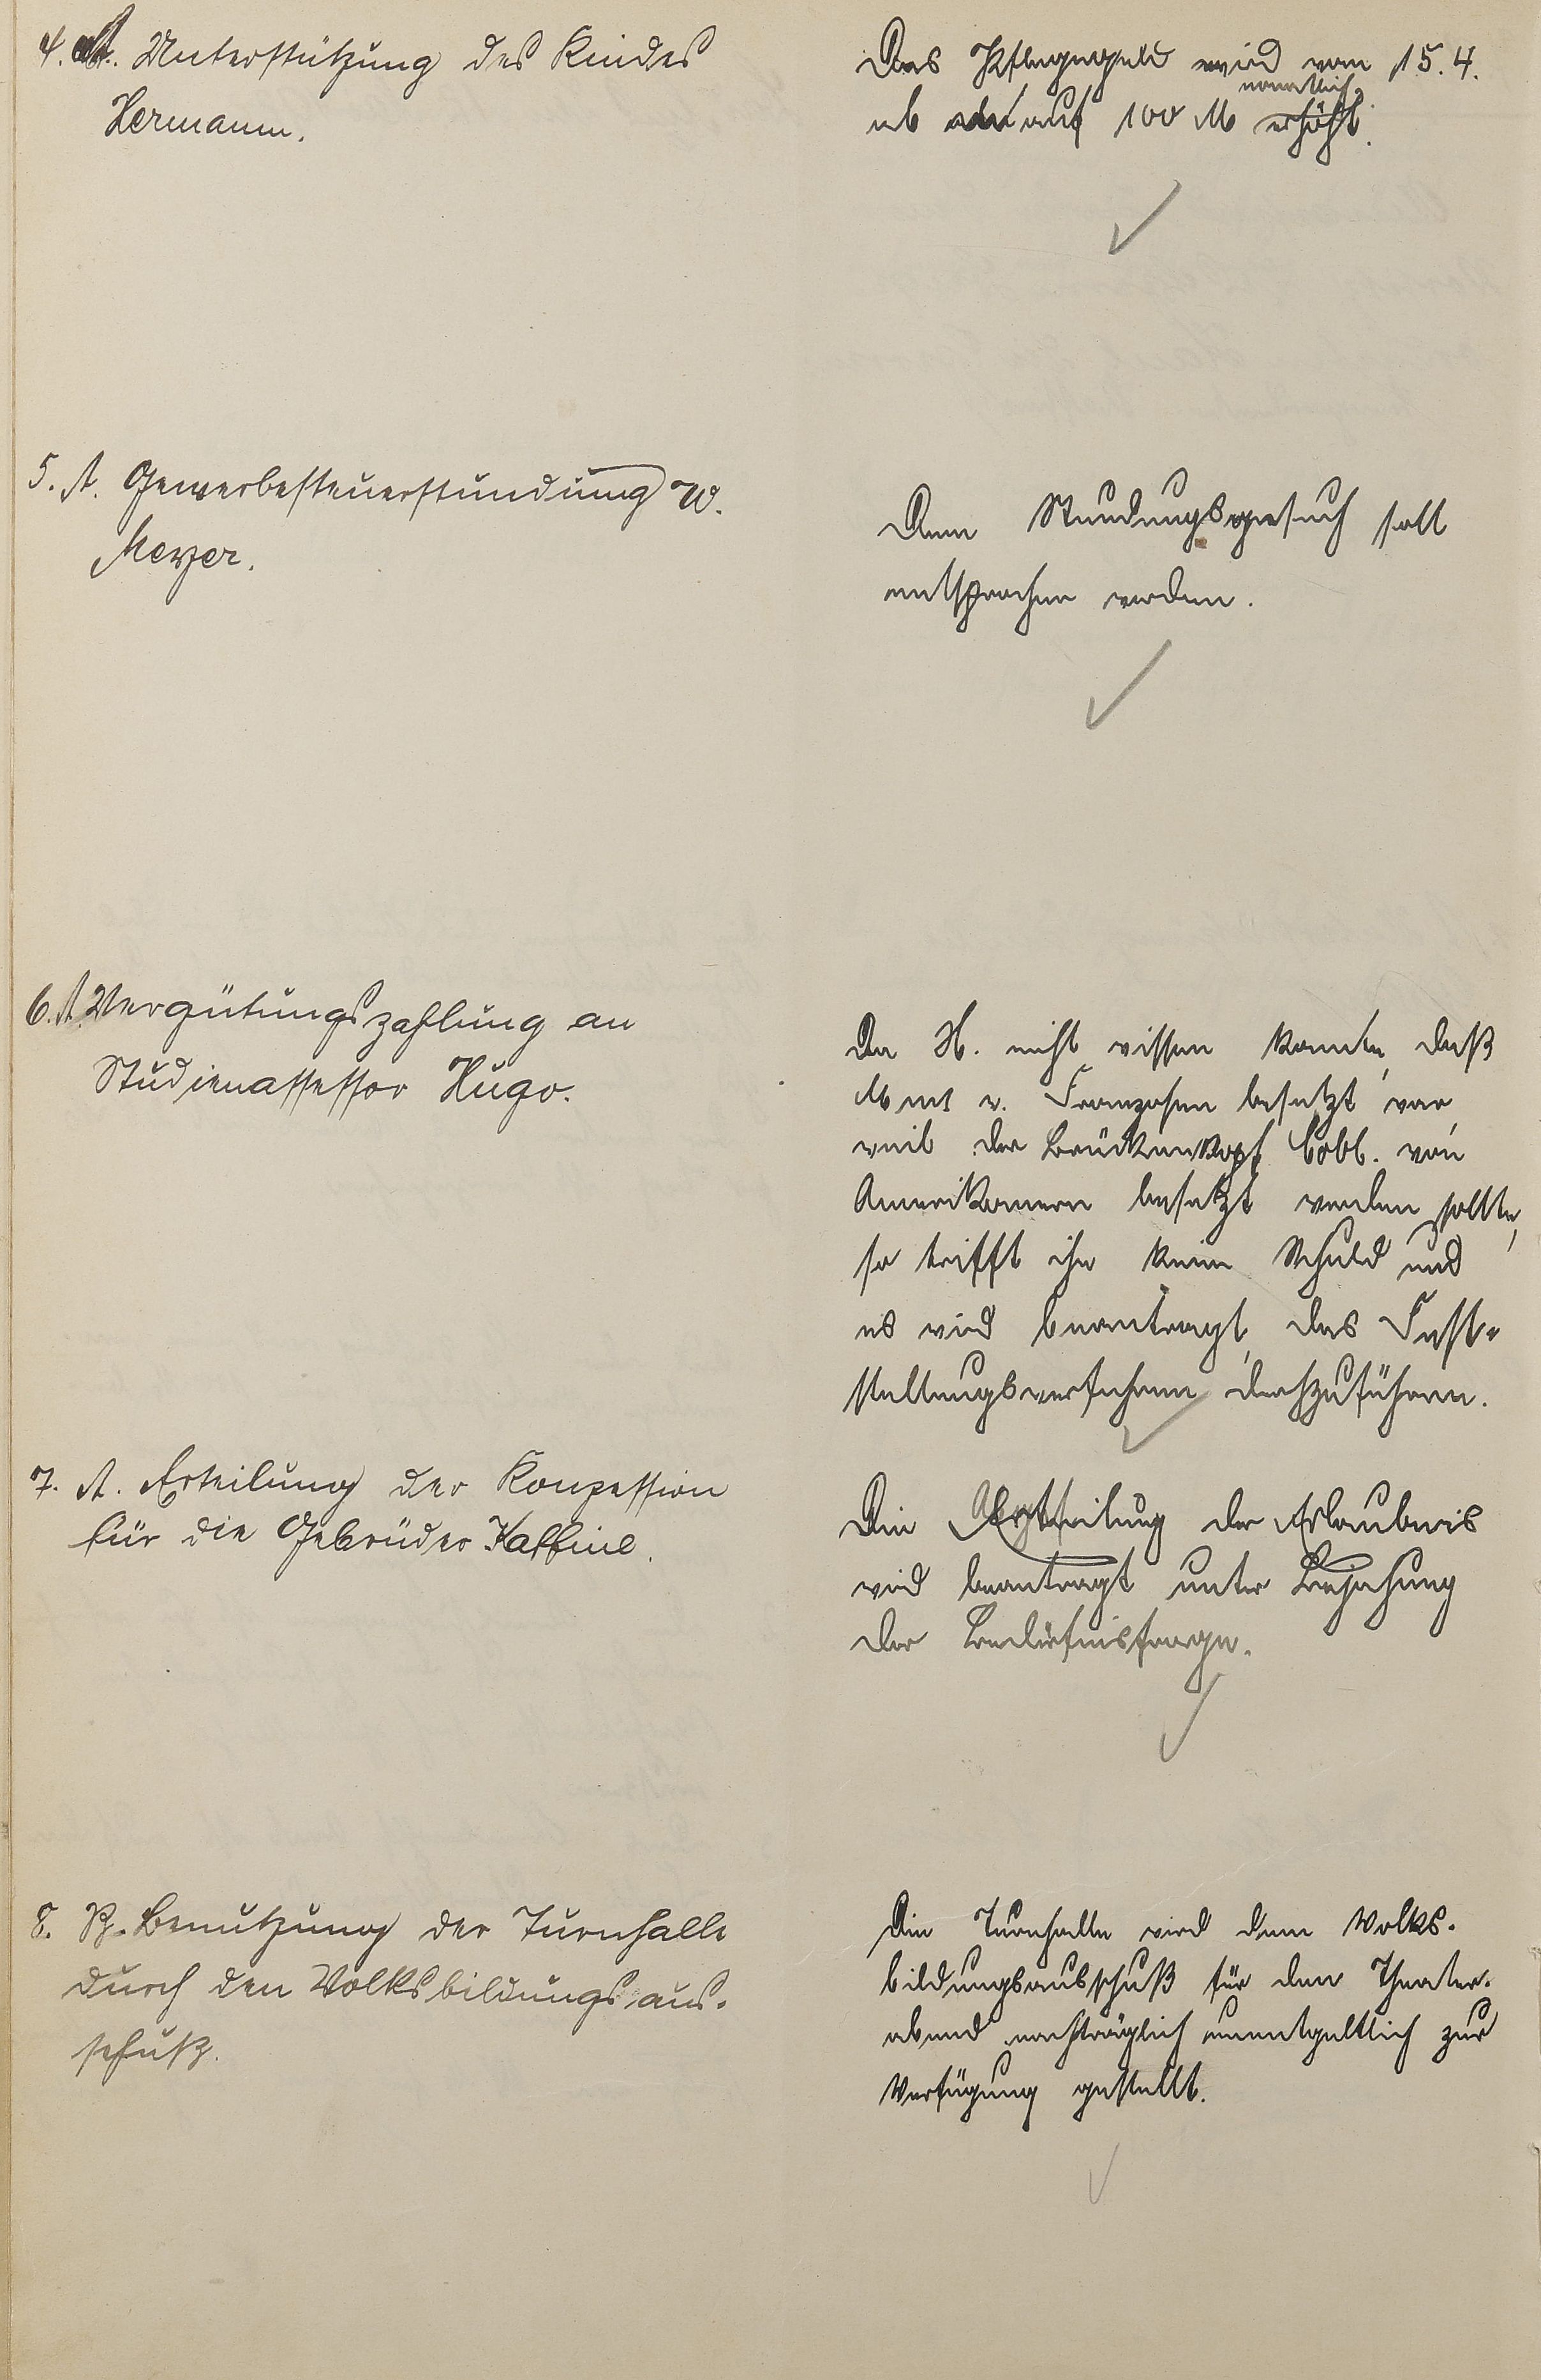 4. A. Unterstützung des Kindes
Hermann.
Das Pflegegeld wird vom 15.4.
monatlich
ab auf 100 M erhöht.
5. A. Gewerbesteuerstundung W.
Meyer.
Dem Stundungsgesuch soll
entsprochen werden.
6. A. Vergütungszahlung an
Studienassessor Hugo.
Da H. nicht wissen konnte, daß
v. Franzosen besetzt war,
weil der Brückenkopf Cobl. von
Amerikanern besetzt werden sollte,
so trifft ihn keine Schuld und
es wird beantragt, das Fest-
stellungsverfahren durchzuführen.
7. A. Erteilung der Konzession
für die Gebrüder Kaffine.
Die Erteilung der Erlaubnis
wird beantragt unter Bejahung
der Bedürfnisfrage.
8. Benutzung der Turnhalle
durch den Volksbildungsaus-
schuß.
Die Turnhalle wird dem Volks-
bildungsausschuß für den Theater-
abend nachträglich unentgeltlich zur
Verfügung gestellt.